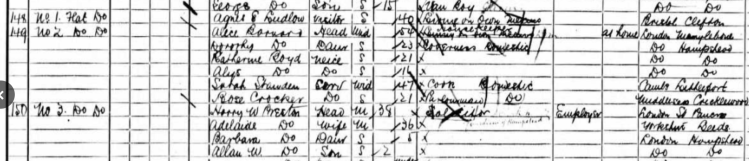 George Do Son S 15 Van Boy Do Do
148 No 1. Flat Do Agnes E Ludlow Visitor S 40 Living on Own Means Bristol Clifton
149 No 2. Do Do Alice Head Wid 54 Living on Own Means at home London Marylebone
Dorothy Do Daur S 23 Governess Domestic Do Hampstead
Katherine Boyd Neice S 21 x Do Do
Alys Do Do S x Do Do
Sarah Serv Wid 47 x Cook Domestic Cambs
Rose Crocker Do S 21 x Parlourmaid Do Middlesex Cricklewood
150 No 3. Do Do Harry W Preston Head M 38 Solicitor Employer London St Pancras
Adelaide Do Wife M 36 x Yorkshire Leeds
Barbara Do Daur S 5 x London Hampstead
Allan W. Do Son S 2 x Do Do